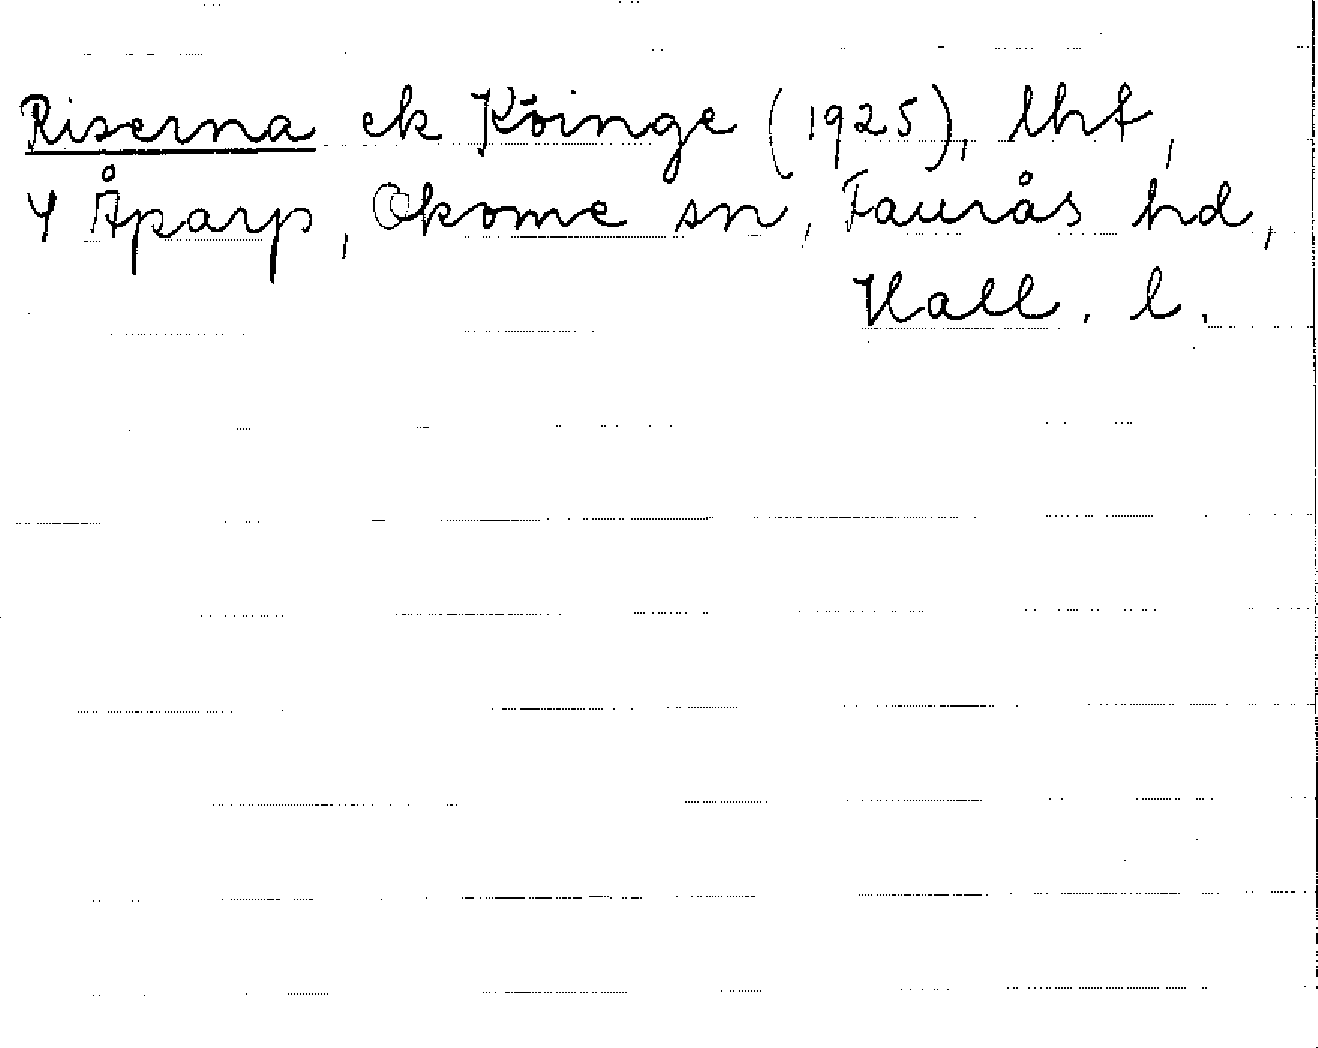 Riserna ek Köinge (1925), lht,
Y Åparp, Okome sn, Faurås hd,
Hall. l.